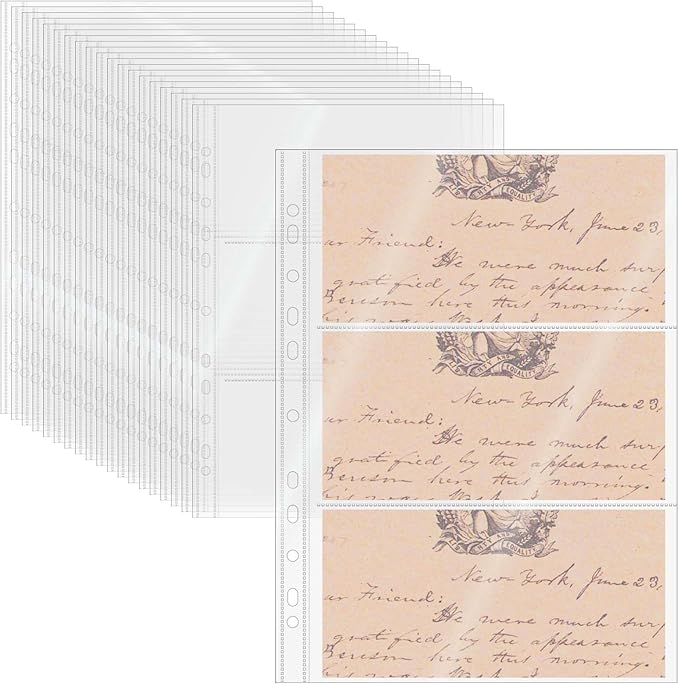 NTY AND EQUALITY
New-York, June 23,
ar Friend:
We were much surp
gratified by the appearance
Benison here this morning.
NTY AND EQUALITY
New-York, June 23,
ar Friend:
We were much surp
gratified by the appearance
Benison here this morning.
NTY AND EQUALITY
New-York, June 23,
ar Friend:
We were much surp
gratified by the appearance
Benison here this morning.